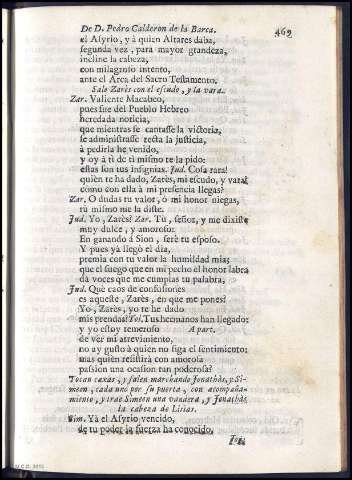 De D. Pedro Calderon de la Barca.
469
el Asyrio, y à quien Astarés daba,
segunda vez, para mayor grandeza,
incline la cabeza,
con milagroso intento,
ante el Arca del Sacro Testamento.
Sale Zarès con el escudo, y la vara.
Zar. Valiente Macabeo,
pues fue del Pueblo Hebreo
heredada noticia,
que mientras se cantasse la victoria,
se administrasse recta la justicia,
à pedirla he venido,
y oy à tì de tì mismo te la pido:
estas son tus insignias. Jud. Cosa rara!
quien te ha dado, Zarès, mi escudo, y vara?
como con ella à mi presencia llegas?
Zar. O dudas tu valor, ò mi honor niegas,
tù mismo me la diste.
Jud. Yo, Zarès? Zar. Tù, señor, y me dixiste
muy dulce, y amoroso:
En ganando à Sion, serè tu esposo.
Y pues yà llegò el dia,
premia con tu valor la humildad mia;
que el fuego que en mi pecho el honor labra
dà voces que me cumplas tu palabra.
Jud. Què caos de confusiones
es aqueste, Zarès, en que me pones?
Yo, Zarès, yo te he dado
mis prendas? Tol. Tus hermanos han llegado:
y yo estoy temeroso A part.
de vèr mi atrevimiento,
no ay gusto à quien no siga el sentimiento:
mas quien resistirà con amorosa
passion una ocasion tan poderosa?
Tocan caxas, y salen marchando Jonathàs, y Si-
meon, cada uno por su puerta, con acompaña-
miento, y trae Simeon una vandera, y Jonathàs
la cabeza de Lisias.
Sim. Yà el Asyrio vencido,
de tu poder la fuerza ha conocido,